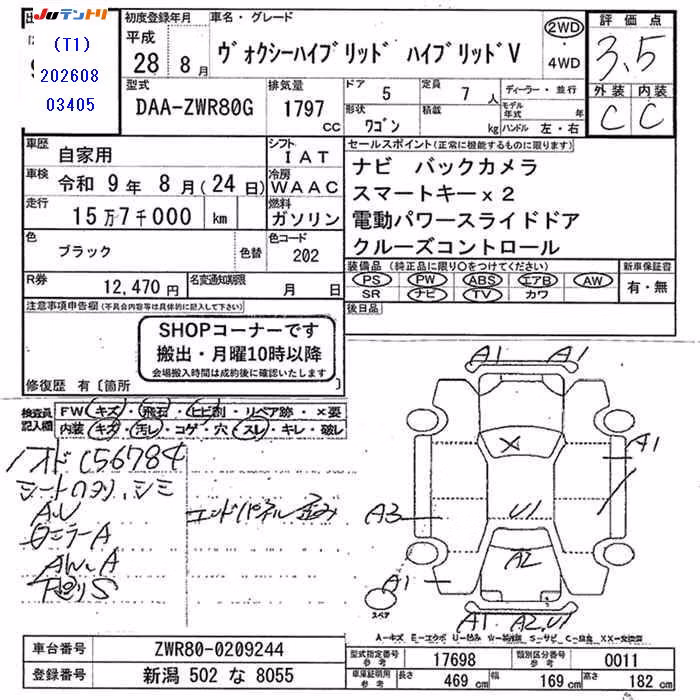 JUテントリ
(T1)
202608
03405
初度登録年月
平成
28 8 月
車名・グレード
ヴォクシーハイブリッド ハイブリッドV
2WD
・
4WD
評価点
3.5
外装 内装
C C
型式
DAA-ZWR80G
排気量
1797
CC
ドア
5
定員
7 人
形状
ワゴン
積載
kg
ディーラー・並行
モデル年式 年
ハンドル 左・右
車歴
自家用
シフト
IAT
車検
令和 9 年 8 月 (24 日)
冷房
WAAC
走行
15 万 7 千 000 km
燃料
ガソリン
色
ブラック
色替
色コード
202
R券
12,470 円
名変通知期限
月 日
セールスポイント(正常に機能するものに限ります)
ナビ バックカメラ
スマートキーx2
電動パワースライドドア
クルーズコントロール
装備品 (純正品に限り○をつけてください)
PS PW ABS エアB AW
SR ナビ TV カワ
新車保証書
有・無
後日品
注意事項申告欄(不具合内容等は具体的に記入して下さい)
SHOPコーナーです
搬出・月曜10時以降
会場搬入時間は成約後に確認いたします
修復歴 有〔箇所
検査員記入欄
FW キズ・飛石・ヒビ割・リペア跡・×要
内装 キズ・汚レ・コゲ・穴・スレ・キレ・破レ
シート
AU
ミラーA
AW.A
エンドパネル歪み
A1 A1
X
A1
A3
U1
A2
A1
A1 A2.U1
スペア
A-キズ E-エクボ U-凹み S-サビ XX-交換済
車台番号
ZWR80-0209244
登録番号
新潟 502 な 8055
型式指定番号
参考
17698
類別区分番号
参考
0011
車庫証明用
参考
長さ
469 cm
幅
169 cm
高さ
182 cm